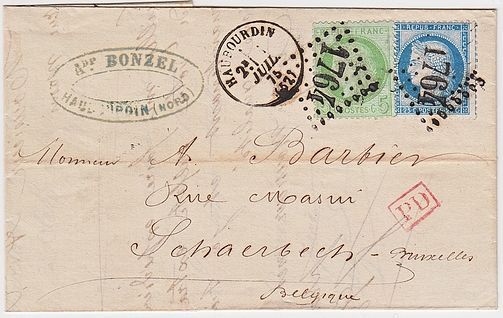 ADP BONZEL
HAUBOURDIN (NORD)
HAUBOURDIN
2E
JUIL
75
(57)
REPUB. FRANC.
POSTES 5
1764
REPUB. FRANC.
25 C. POSTES
1764
Monsieur A. Barbier
Rue Masui
PD
Schaerbeck - Bruxelles
Belgique